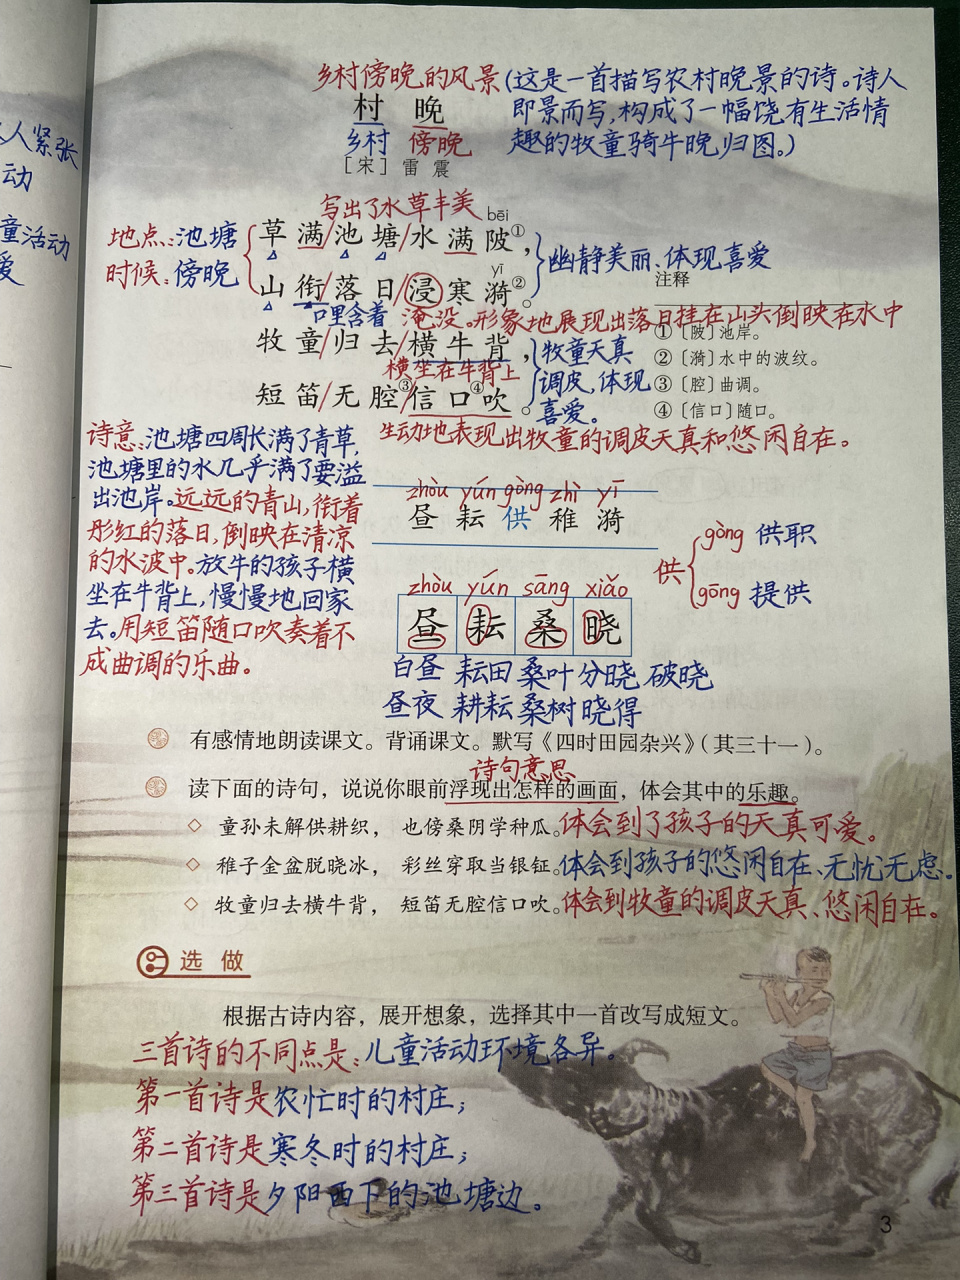 人紧张
动
童活动
爱
乡村傍晚的风景(这是一首描写农村晚景的诗。诗人
村 晚
即景而写,构成了一幅饶有生活情
乡村 傍晚
趣的牧童骑牛晚归图。)
[宋] 雷 震
写出了水草丰美
bēi
地点:池塘
草满/池塘/水满陂①,
时候:傍晚
幽静美丽、体现喜爱
yī
山衔/落日/浸寒漪②。
注释
口里含着 淹没。形象地展现出落日挂在山头倒映在水中
①〔陂〕池岸。
牧童/归去/横牛背,
牧童天真
②〔漪〕水中的波纹。
横坐在牛背上
调皮、体现
③〔腔〕曲调。
短笛/无腔③/信口④吹。
喜爱。
④〔信口〕随口。
生动地表现出牧童的调皮天真和悠闲自在。
诗意:池塘四周长满了青草,
池塘里的水几乎满了要溢
出池岸。远远的青山,衔着
彤红的落日,倒映在清凉
的水波中。放牛的孩子横
坐在牛背上,慢慢地回家
去。用短笛随口吹奏着不
成曲调的乐曲。
zhòu yún gòng zhì yī
昼 耘 供 稚 漪
gòng 供职
供
gōng 提供
zhòu yún sāng xiǎo
昼 耘 桑 晓
白昼 耘田 桑叶 分晓 破晓
昼夜 耕耘 桑树 晓得
有感情地朗读课文。背诵课文。默写《四时田园杂兴》(其三十一)。
诗句意思
读下面的诗句,说说你眼前浮现出怎样的画面,体会其中的乐趣。
◇ 童孙未解供耕织, 也傍桑阴学种瓜。体会到了孩子的天真可爱。
◇ 稚子金盆脱晓冰, 彩丝穿取当银钲。体会到孩子的悠闲自在、无忧无虑。
◇ 牧童归去横牛背, 短笛无腔信口吹。体会到牧童的调皮天真、悠闲自在。
选 做
根据古诗内容,展开想象,选择其中一首改写成短文。
三首诗的不同点是:儿童活动环境各异。
第一首诗是农忙时的村庄;
第二首诗是寒冬时的村庄;
第三首诗是夕阳西下的池塘边。
3